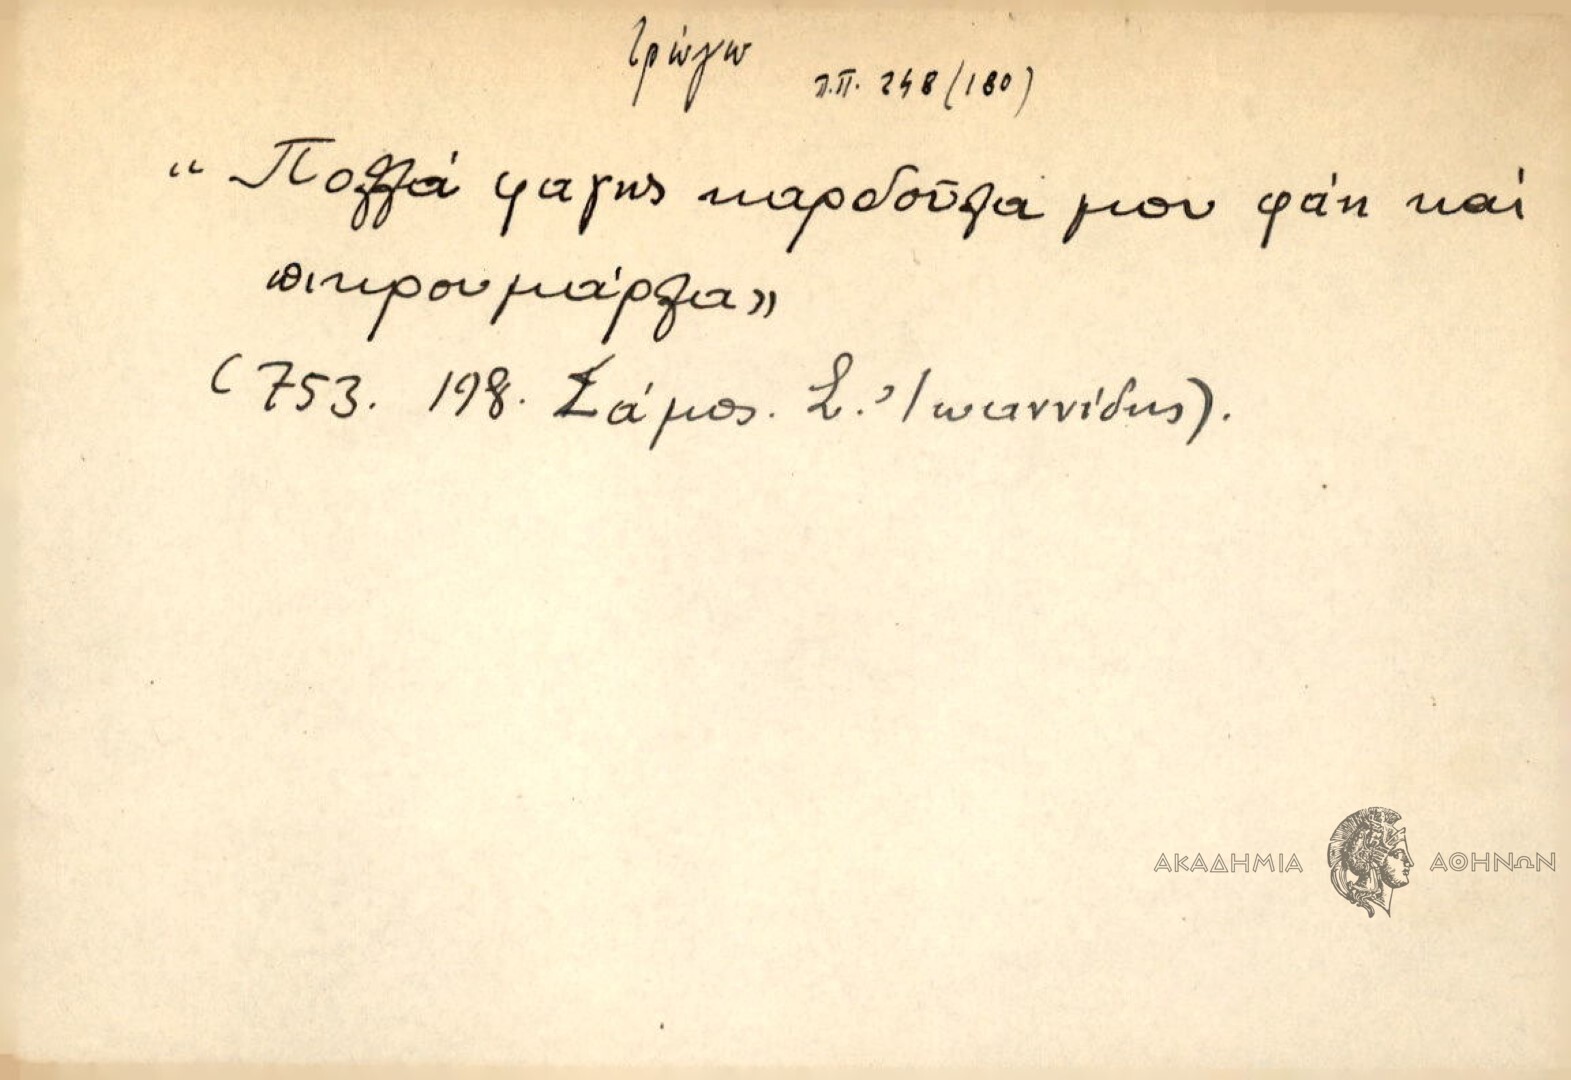 τρώγω
π.π. 248 (180)
“ Πολλά φαγης καρδοῦλα μου φάη καί
πικρουμάρλα»
(753. 198. Σάμος. Σ. Ἰωαννίδης).
ΑΚΑΔΗΜΙΑ ΑΘΗΝΩΝ